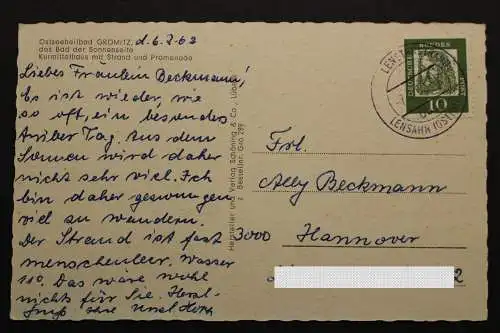 Ostseeheilbad GRÖMITZ,
das Bad der Sonnenseite
Kurmittelhaus mit Strand und Promenade
d. 6.7.62
Liebes Fräulein Beckmann!
Es ist wieder, wie
so oft, ein besonders
Tag. Aus dem
Sonnen wird daher
nicht sehr viel. Ich
bin daher gezwungen
viel zu wandern.
Der Strand ist fast
menschenleer, Wasser
11°. Das wäre wohl
nichts für Sie. Herzl.
Hersteller und Verlag Schöning & Co., Lübeck
Bestellnr. Grö 299
DEUTSCHE BUNDESPOST
10
LENSAHN (OSTH
Frl.
Ally Beckmann
3000 Hannover
2